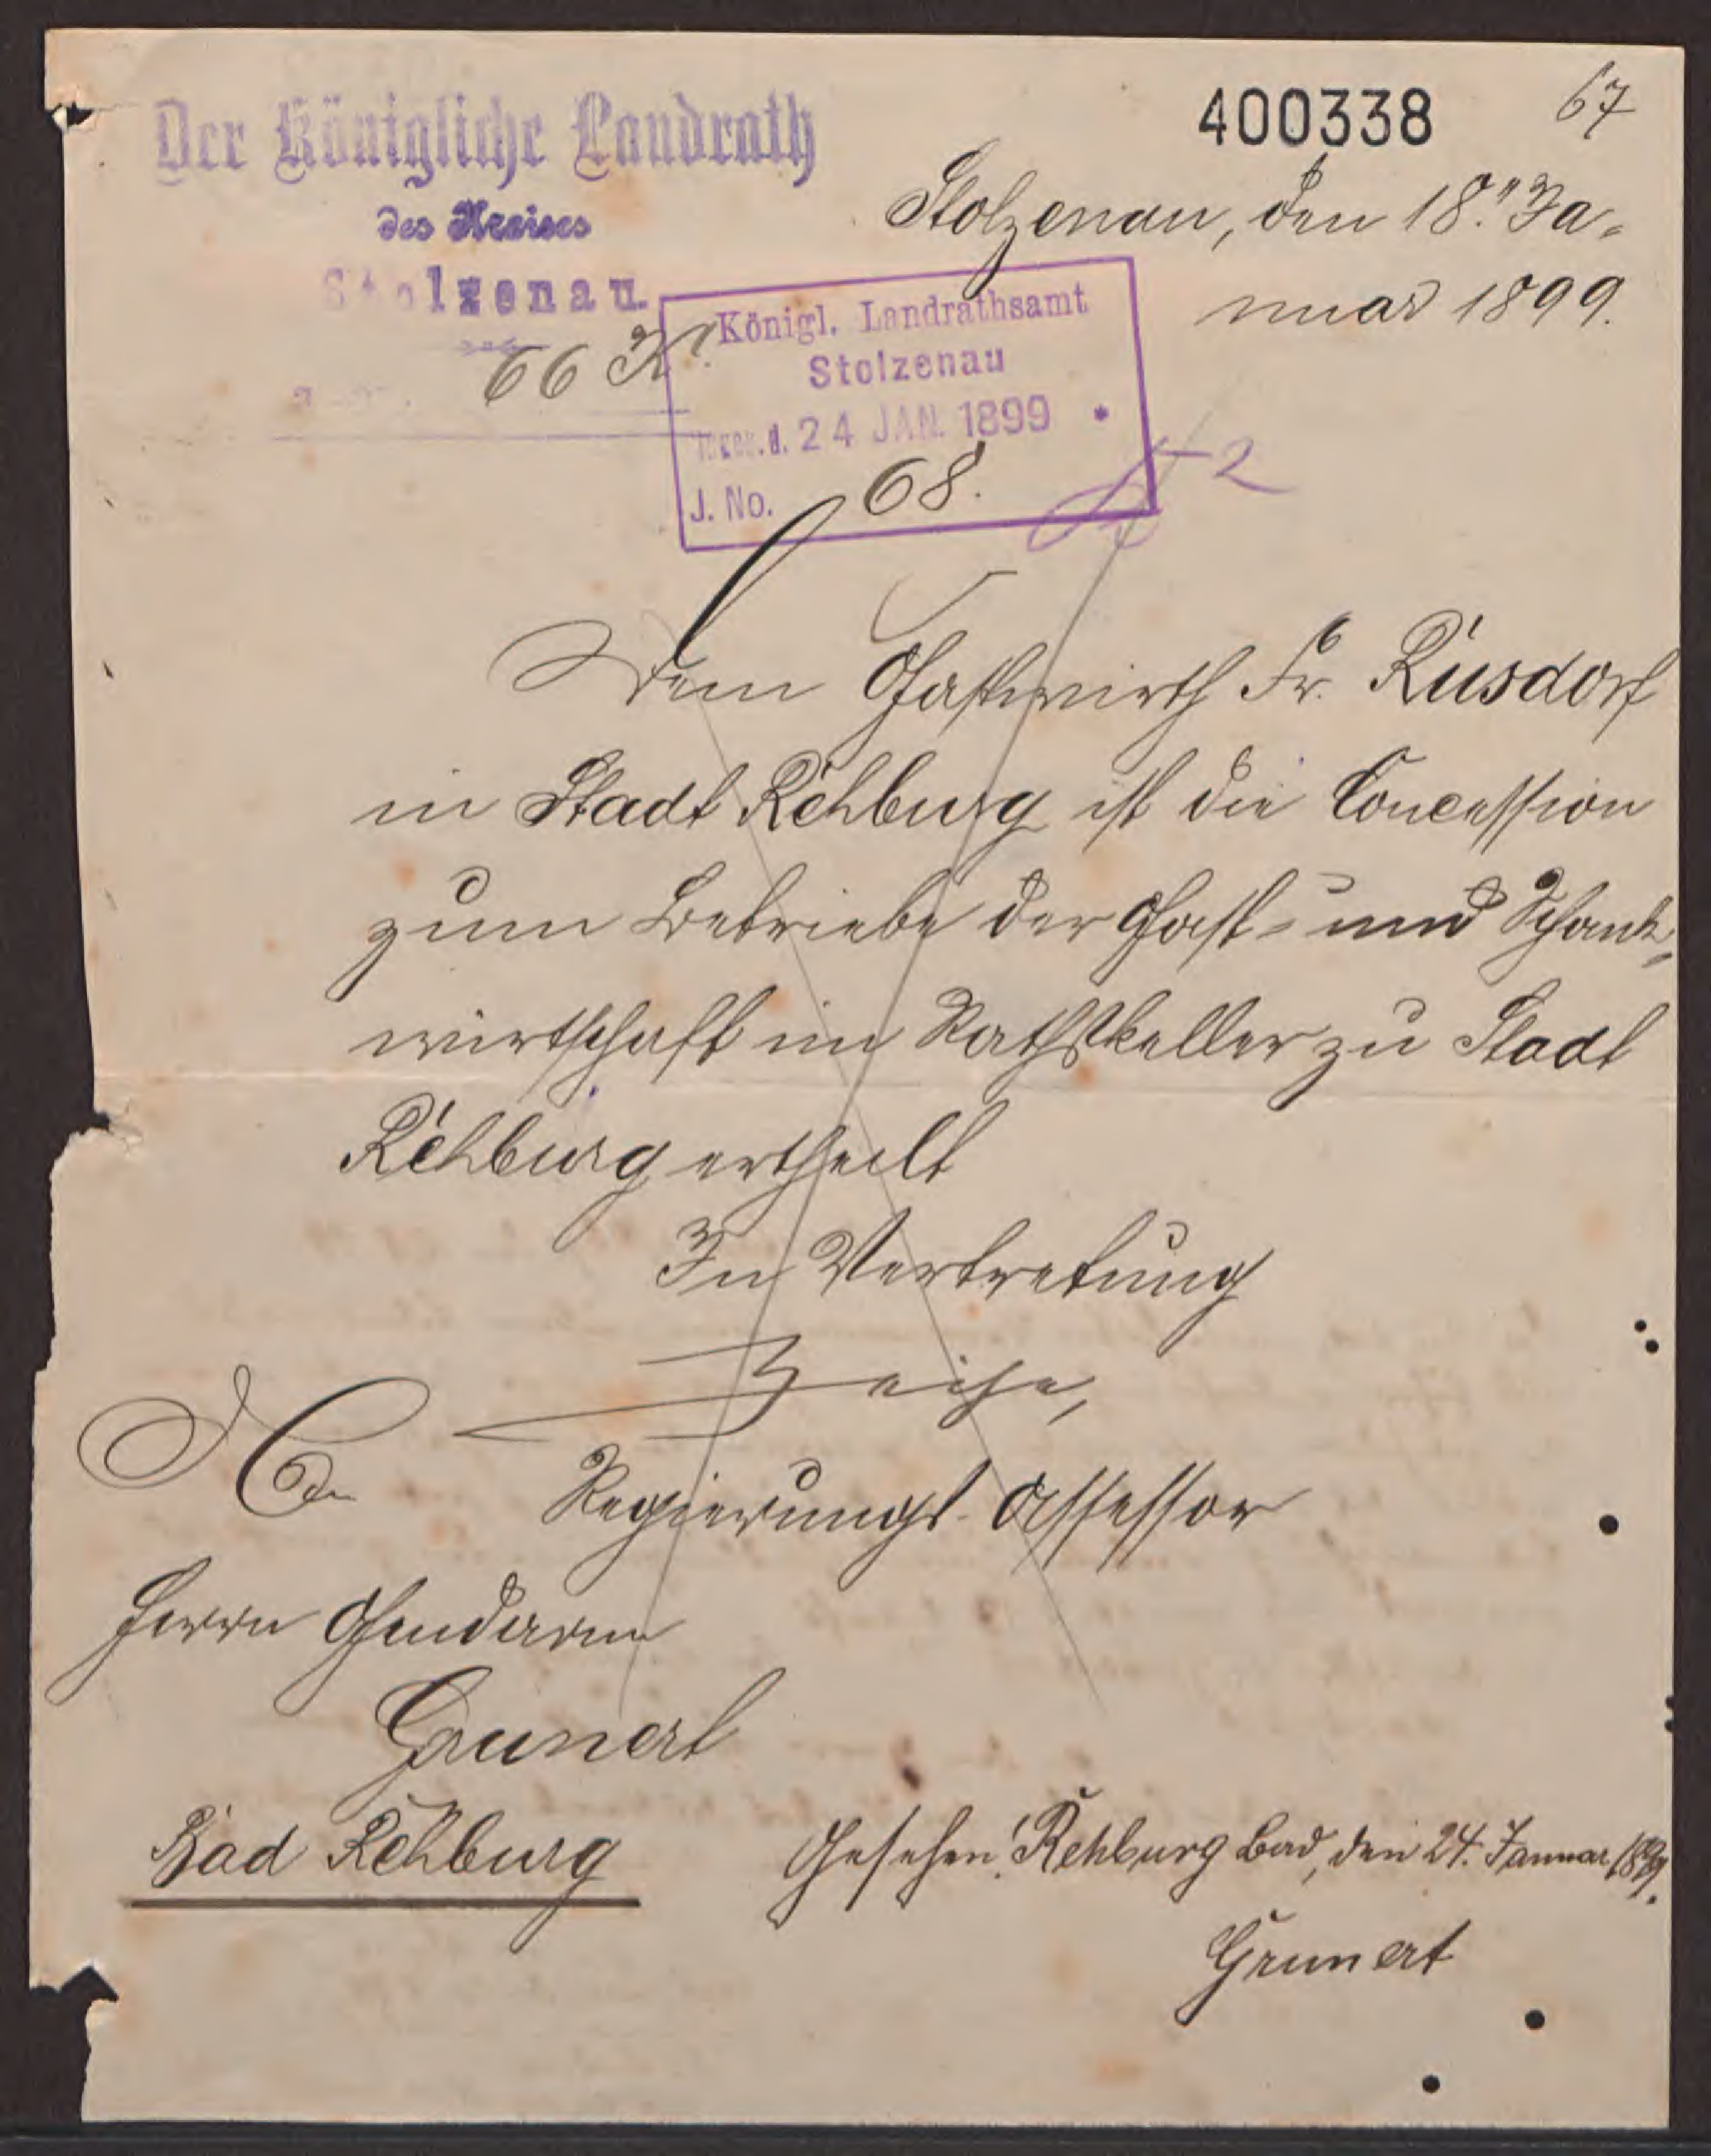 400338
67
Der Königliche Landrath
des Kreises
Stolzenau.
66 K.
Stolzenau, den 18. Ja-
nuar 1899.
Königl. Landrathsamt
Stolzenau
24 JAN. 1899 *
J. No. 68.
Dem Gastwirth Fr. Rüsdorf
in Stadt Rehburg ist die Concession
zum Betriebe der Gast- und Schank-
wirtschaft im Rathskeller zu Stadt
Rehburg ertheilt
In Vertretung
Regierungs-Assessor
An
Herrn Gendarm
Grunert
Bad Rehburg
Gesehen! Rehburg Bad, den 24. Januar 1899.
Grunert